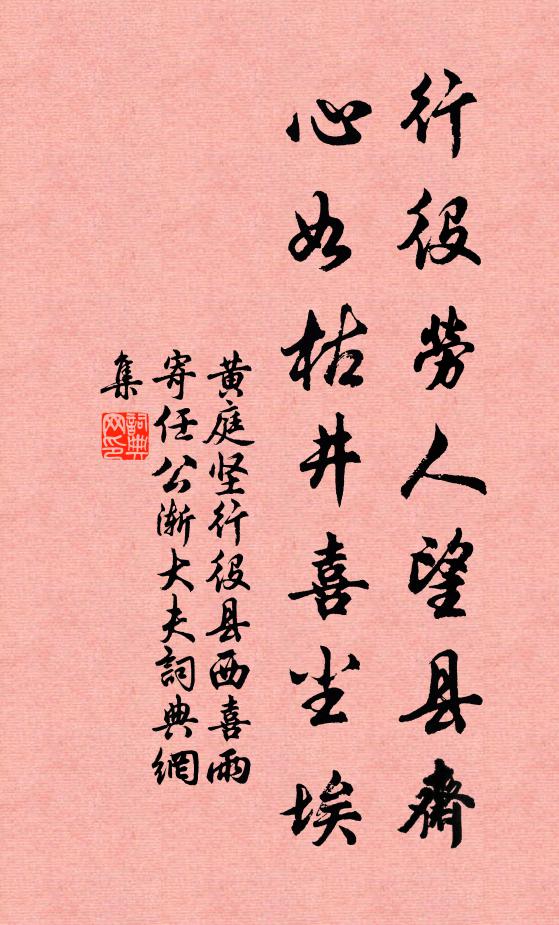 行役劳人望县斋
心如枯井喜尘埃
黄庭坚行役县西喜雨
寄任公渐大夫詞典網
集
詞典
网印